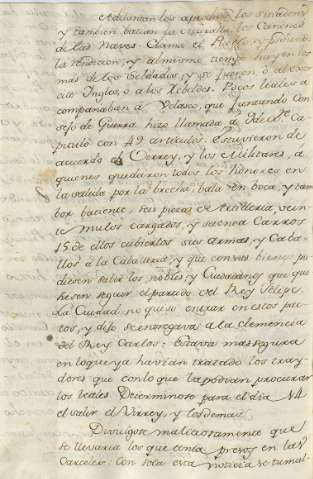 Adelantan los aproches los sitiadores,
y tambien batian la muralla los Cañones
de las Naves. Clama el Pueblo pidiendo
la rendicion, y al mismo tiempo huyen los
mas de los Soldados, y se fueron ó al exer-
cito Ingles, ó a los Rebeldes. Pocos leales a-
compañaban á Velasco, que juntando Con-
sejo de Guerra hizo llamada á Ca-
pitulo con 49 articulos. Estuvieron de
acuerdo el Virrey, y los Militares, á
quienes quedaron todos los honores en
la salida por la brecha: bala en boca, y tam-
bor batiente, seis piezas de Artilleria, vein-
te mulos cargados, y Carros
15 de ellos cubiertos sus armas, y Caba-
llos á la Caballeria, y que con sus bienes pu-
diesen salir los nobles, y Ciudadanos que qui-
siesen seguir el partido del Rey Felipe.
La Ciudad no quiso entrar en estos pac-
tos, y dijo se entregava a la clemencia
del Rey Carlos: Estava mas segura
en lo que ya havian tratado los tray-
dores que con lo que la podian procurar
los leales. Determinose para el dia 14
el salir el Virrey, y los demas.
Divulgose maliciosamente que
se llevaria los que tenia presos en las
Carceles: con toda esta noticia se tumul-